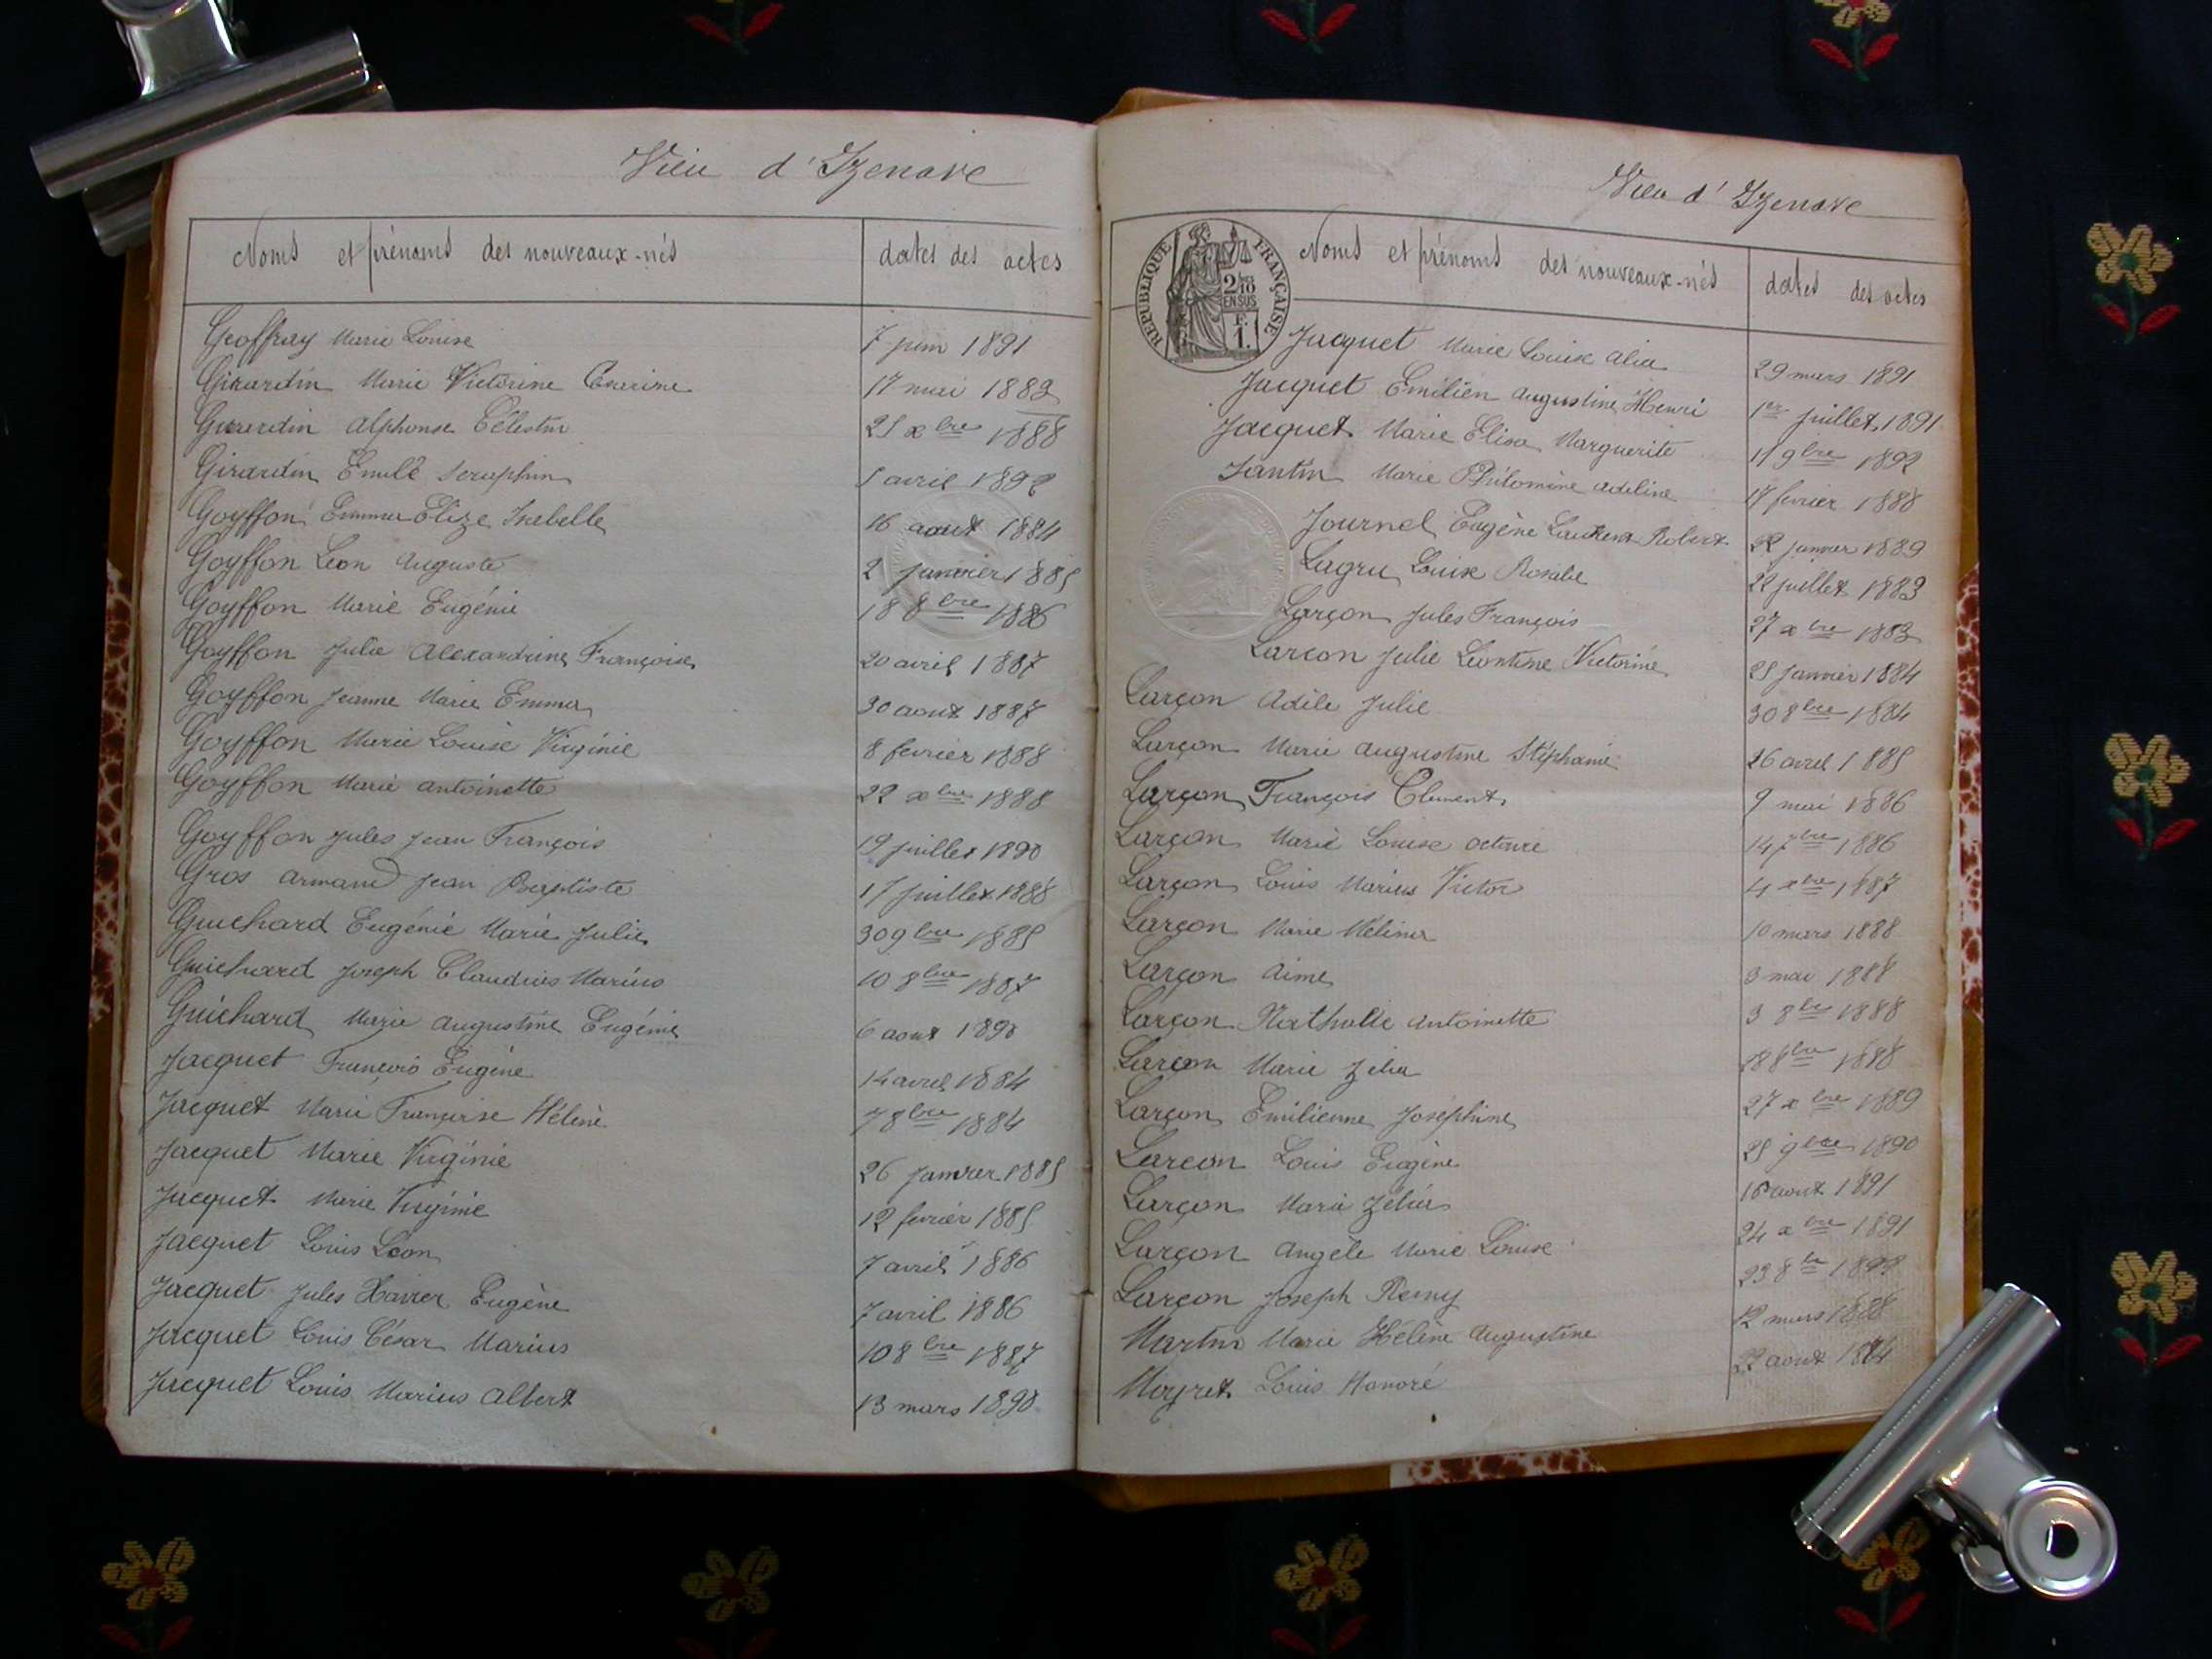 Vieu d'Izenave
Noms et prénoms des nouveaux-nés dates des actes
Geoffray Marie Louise 7 juin 1891
Girardin Marie Victorine Cesarine 17 mai 1883
Girardin Alphonse Célestin 25 xbre 1888
Girardin Emile Seraphin 5 avril 1892
Goyffon Emma Elize Isabelle 16 aout 1884
Goyffon Leon Auguste 2 janvier 1885
Goyffon Marie Eugénie 18 8bre 1886
Goyffon Julie Alexandrine Françoise 20 avril 1887
Goyffon Jeanne Marie Emma 30 aout 1887
Goyffon Marie Louise Virginie 8 fevrier 1888
Goyffon Marie Antoinette 22 xbre 1888
Goyffon Jules Jean François 19 juillet 1890
Gros Armand Jean Baptiste 17 juillet 1888
Guichard Eugénie Marie Julie 30 9bre 1885
Guichard Joseph Claudius Marius 10 8bre 1887
Guichard Marie Augustine Eugénie 6 aout 1890
Jacquet François Eugène 14 avril 1884
Jacquet Marie Françoise Hélène 7 8bre 1884
Jacquet Marie Virginie 26 janvier 1885
Jacquet Marie Virginie 12 fevrier 1885
Jacquet Louis Léon 7 avril 1886
Jacquet Jules Xavier Eugène 7 avril 1886
Jacquet Louis César Marius 10 8bre 1887
Jacquet Louis Marius Albert 13 mars 1890
Vieu d'Izenave
REPUBLIQUE FRANÇAISE
2/10
EN SUS
F.
1.
Noms et prénoms des nouveaux-nés dates des actes
Jacquet Marie Louise Alia 29 mars 1891
Jacquet Emilien Augustine Henri 1er juillet 1891
Jacquet Marie Elisa Marguerite 11 9bre 1892
Jantin Marie Philomène Adeline 17 fevrier 1888
Journel Eugène Laurent Robert 22 janvier 1889
Lagru Louise Rosalie 22 juillet 1883
Larçon Jules François 27 xbre 1883
Larcon Julie Léontine Victorine 25 janvier 1884
Larçon Adèle Julie 30 8bre 1884
Larçon Marie Augustine Stéphanie 26 avril 1885
Larçon François Clement 9 mai 1886
Larçon Marie Louise Octavie 14 7bre 1886
Larçon Louis Marius Victor 4 xbre 1887
Larçon Marie Mélina 10 mars 1888
Larçon Aimé 3 mai 1888
Larçon Nathalie Antoinette 3 8bre 1888
Larçon Marie Zélia 18 8bre 1888
Larçon Emilienne Joséphine 27 xbre 1889
Larcon Louis Eugène 25 9bre 1890
Larçon Marie Zélia 16 aout 1891
Larçon Angèle Marie Louise 24 xbre 1891
Larçon Joseph Remy 23 8bre 1892
Martin Marie Hélène Augustine 12 mars 1888
Moyret Louis Honoré 22 aout 1884